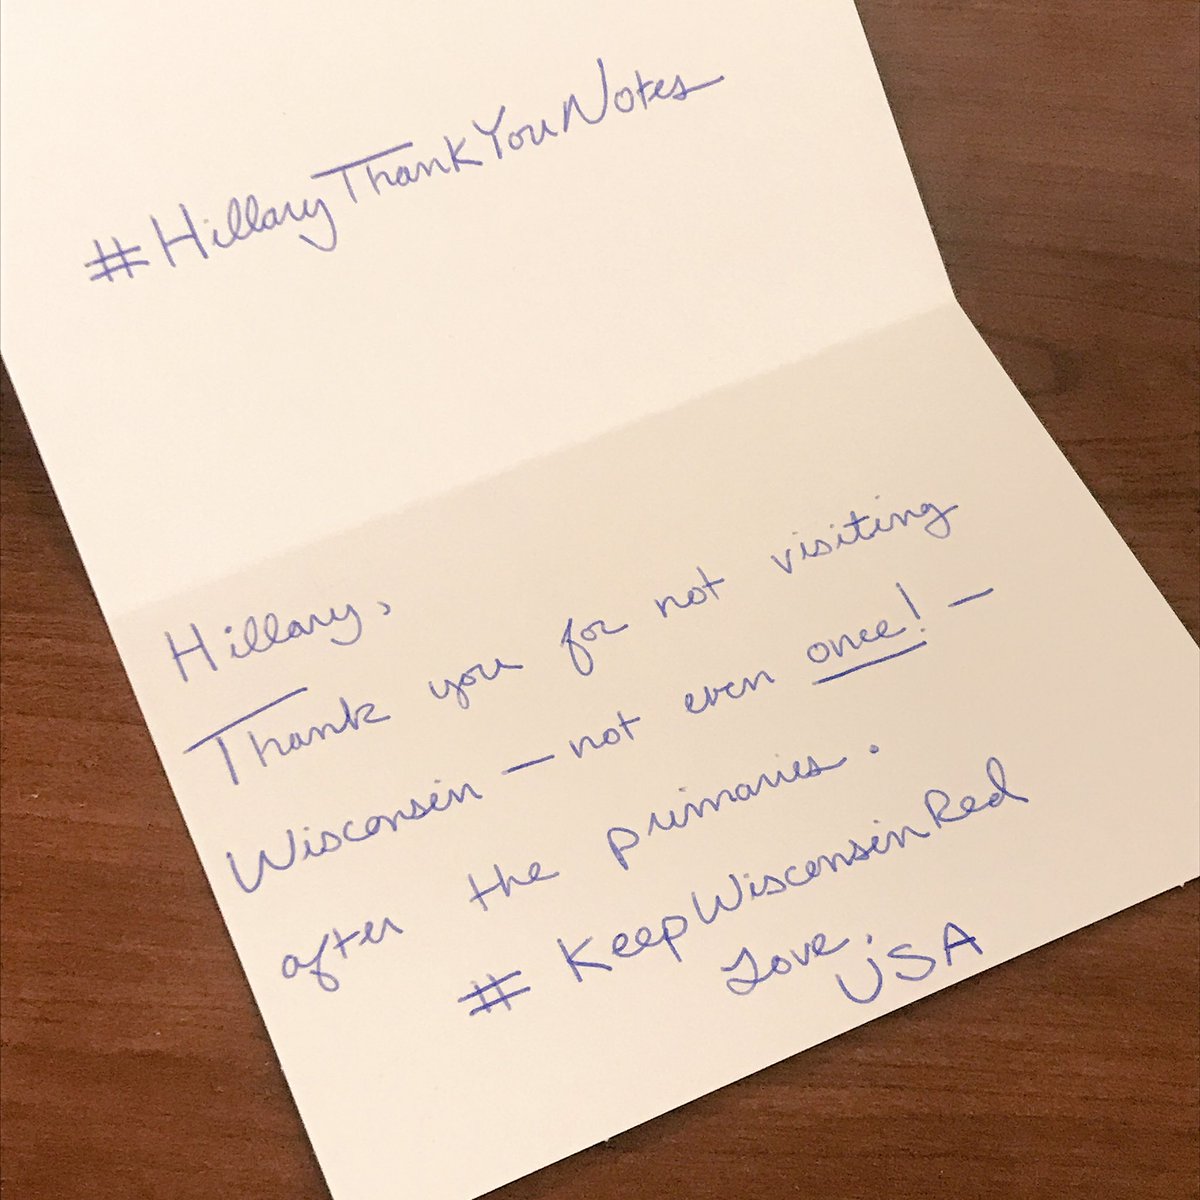 #HillaryThankYouNotes
Hillary,
Thank you for not visiting
Wisconsin — not even once! —
after the primaries.
#KeepWisconsinRed
Love,
USA